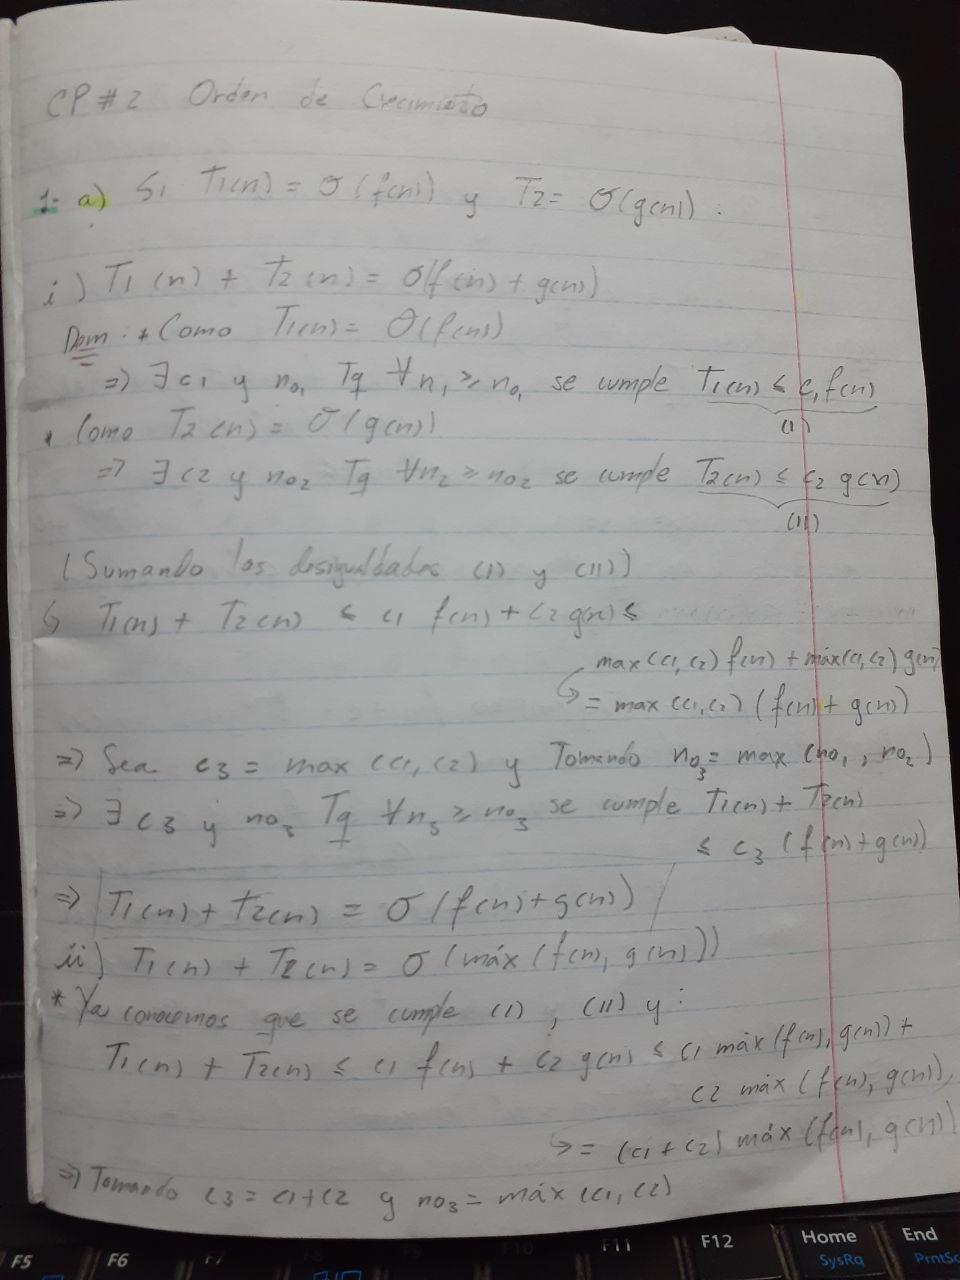 CP#2 Orden de Crecimiento
1- a) Si T1(n) = O(f(n)) y T2 = O(g(n)):
i) T1(n) + T2(n) = O(f(n) + g(n))
Dem: * Como T1(n) = O(f(n))
=> ∃ c1 y n01 Tq ∀n1 ≥ n01 se cumple T1(n) ≤ c1 f(n)
(I)
* Como T2(n) = O(g(n))
=> ∃ c2 y n02 Tq ∀n2 ≥ n02 se cumple T2(n) ≤ c2 g(n)
(II)
(Sumando las desigualdades (I) y (II))
↳ T1(n) + T2(n) ≤ c1 f(n) + c2 g(n) ≤
max(c1, c2) f(n) + máx(c1, c2) g(n)
↳ = max(c1, c2) (f(n) + g(n))
=> Sea c3 = max(c1, c2) y Tomando n03 = max(n01, n02)
=> ∃ c3 y n03 Tq ∀n3 ≥ n03 se cumple T1(n) + T2(n)
≤ c3 (f(n) + g(n))
=> T1(n) + T2(n) = O(f(n) + g(n))
ii) T1(n) + T2(n) = O(máx(f(n), g(n)))
* Ya conocemos que se cumple (I), (II) y:
T1(n) + T2(n) ≤ c1 f(n) + c2 g(n) ≤ c1 máx(f(n), g(n)) +
c2 máx(f(n), g(n)),
↳ = (c1 + c2) máx(f(n), g(n))
=> Tomando c3 = c1 + c2 y n03 = máx(c1, c2)
F5 F6 F7 F8 F9 F10 F11 F12 Home End
SysRq PrntSc